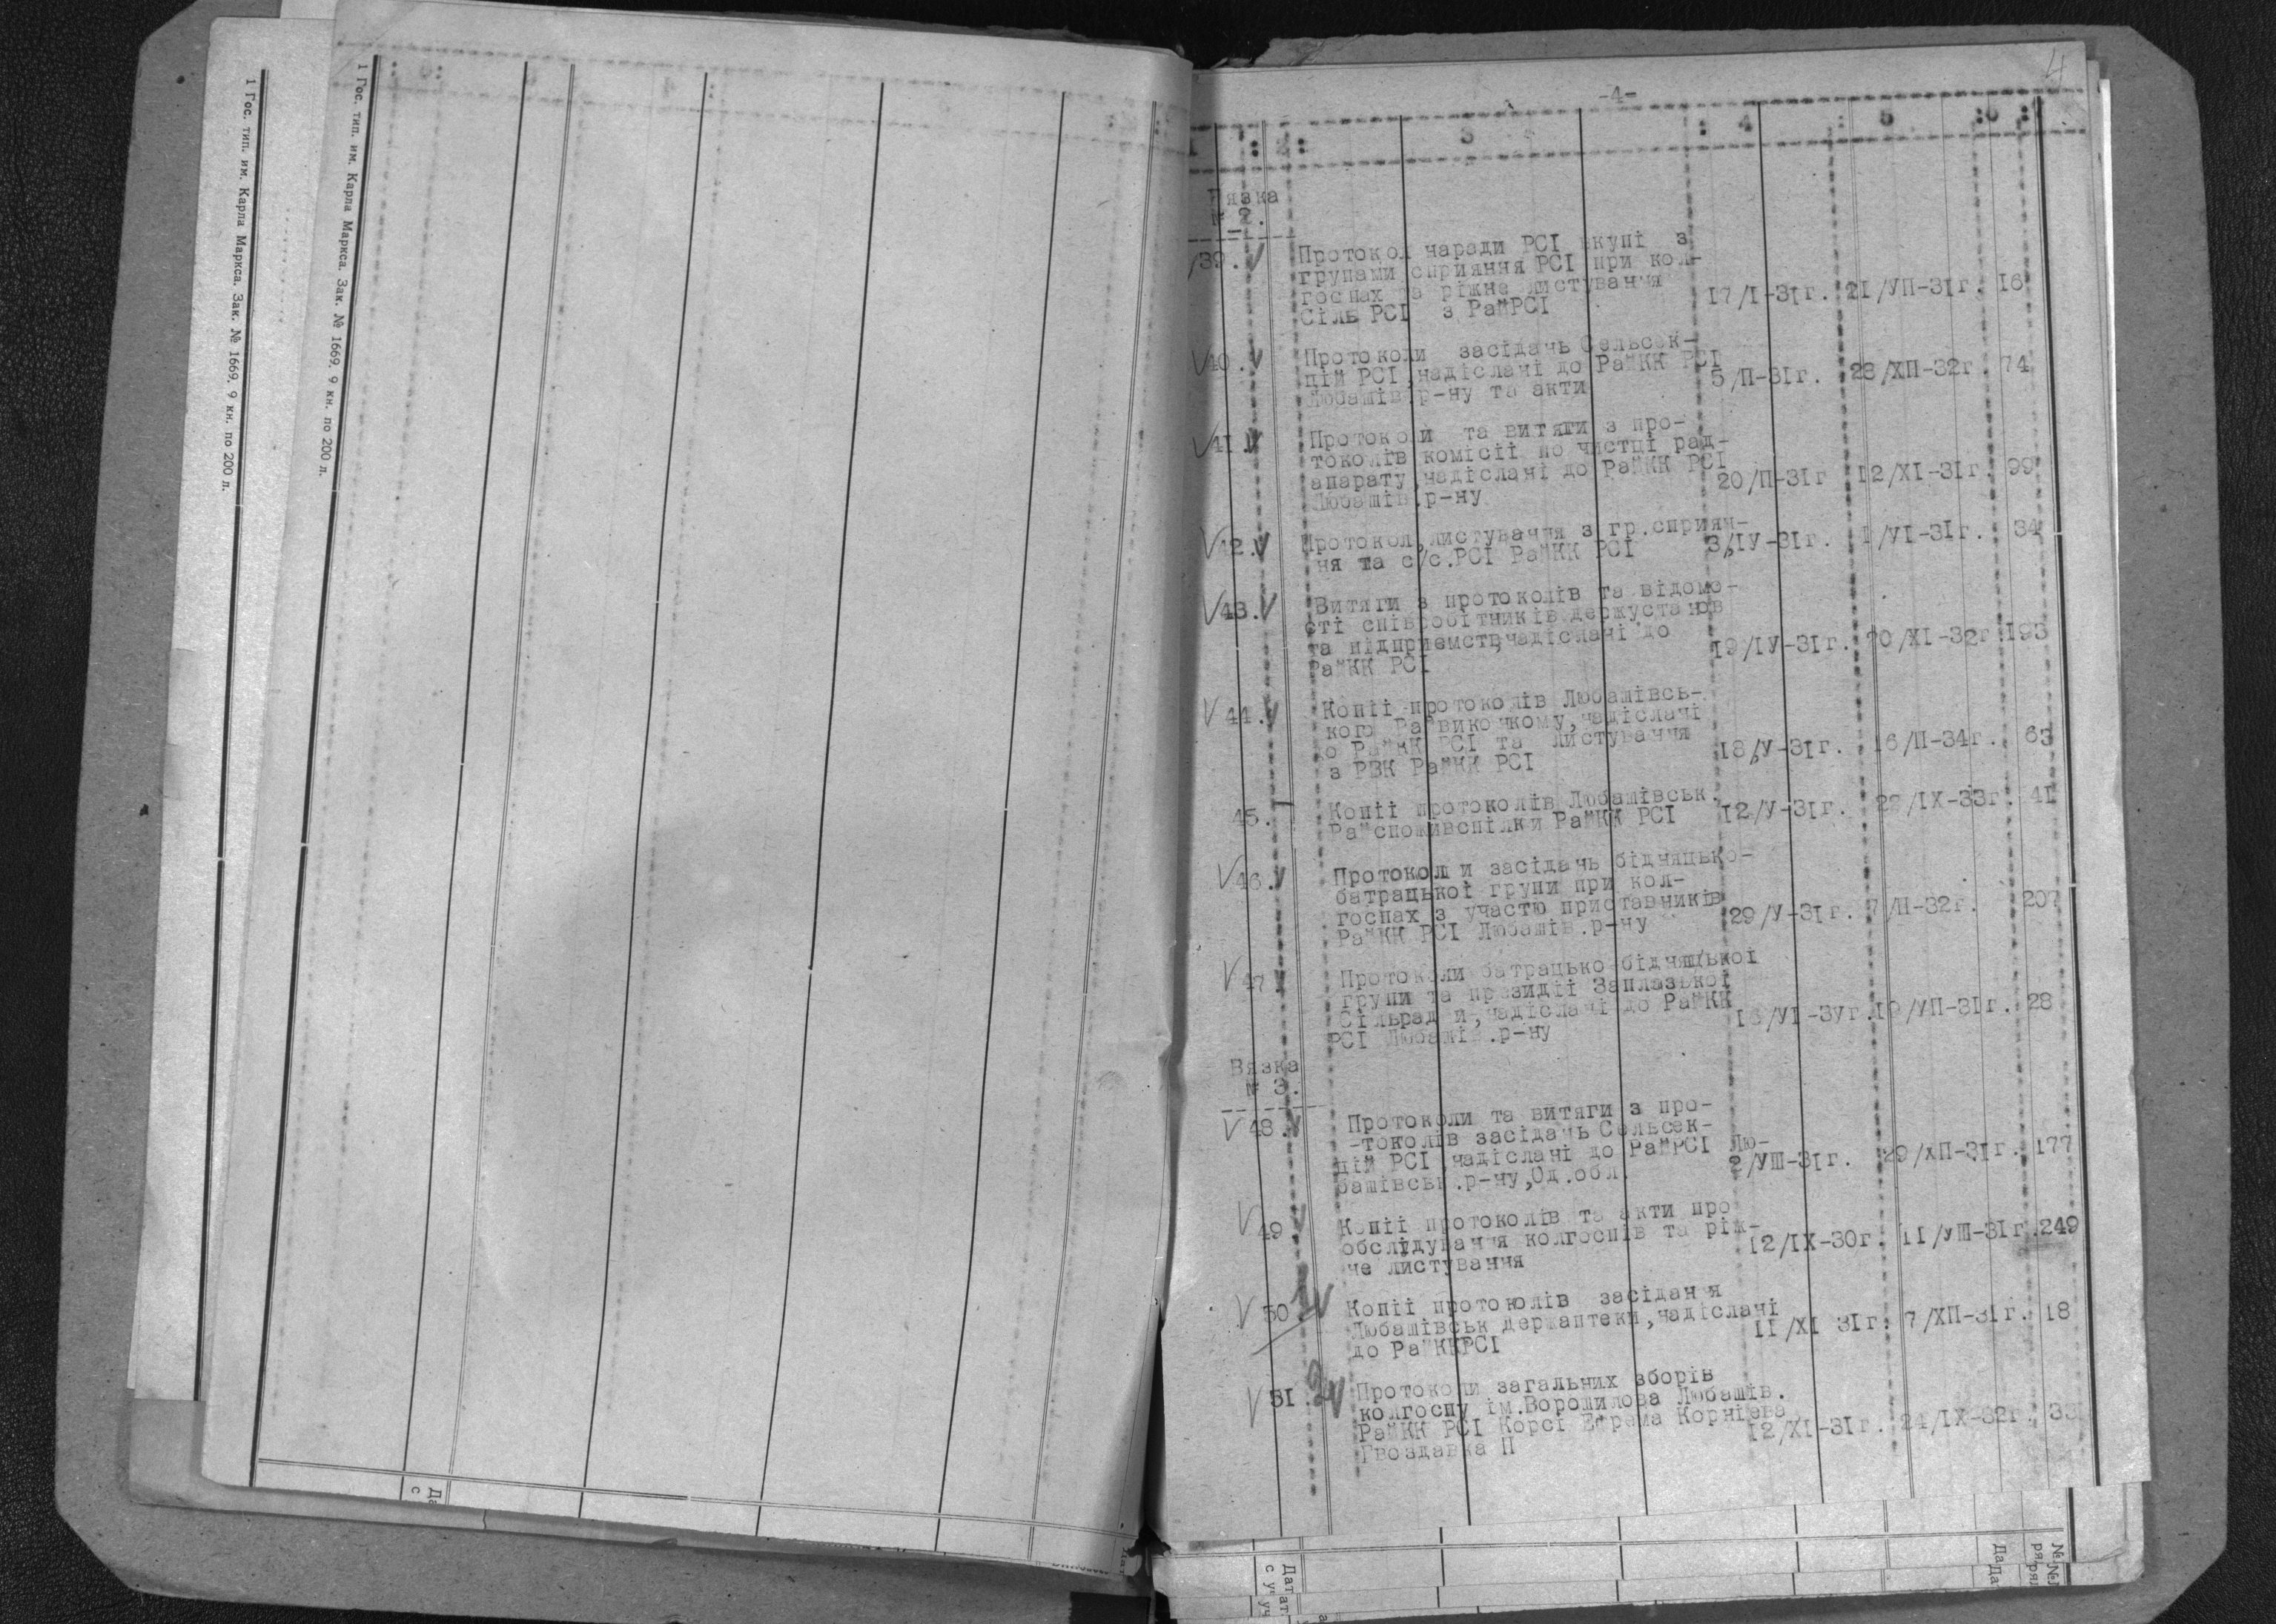 1 Гос. тип. им. Карла Маркса. Зак. № 1669. 9 кн. по 200 л.
1 Гос. тип. им. Карла Маркса. Зак. № 1669. 9 кн. по 200 л.
4
-4-
3 : 4 : 5 :6 :
Вязка
№ 2.
39. Протокол наради РСІ вкупі з
групами сприяння РСІ при кол-
госпах та ріжне листування
Сіль РСІ з РайРСІ 17/І-31г. 21/УП-31г. 16
40. Протоколи засідань Сельсек-
цій РСІ, надіслані до РайКК РСІ
Любашів.р-ну та акти 5/П-31г. 28/ХП-32г. 74
41. Протоколи та витяги з про-
токолів комісії по чистці рад-
апарату, надіслані до РайКК РСІ
Любашів.р-ну 20/П-31г 12/ХІ-31г. 99
42. Протокол, листування з гр.сприян-
ня та с/с.РСІ РайКК РСІ 3/ІУ-31г. 1/УІ-31г. 34
43. Витяги з протоколів та відомо-
сті співробітників держустанов
та підприємств, надіслані до
РайКК РСІ 19/ІУ-31г. 20/ХІ-32г. 193
44. Копії протоколів Любашівсь-
кого Райвиконкому, надіслані
о РайКК РСІ та листування
з РВК РайКК РСІ 18/У-31г. 16/П-34г. 63
45. Копії протоколів Любашівськ.
Райспоживспілки РайКК РСІ 12/У-31г. /ІХ-33г. 41
46. Протоколи засідань бідняцько-
батрацької групи при кол-
госпах з участю приставників
РайКК РСІ Любашів.р-ну 29/У-31г. 7/П-32г. 207
47 Протоколи батрацько-бідняцької
групи та президії Заплазької
Сільради, надіслані до РайКК
РСІ Любашів.р-ну 16/УІ-3Уг. 19/УП-31г. 28
Вязка
№ 3.
48. Протоколи та витяги з про-
-токолів засідань Сельсек-
цій РСІ надіслані до РайРСІ Лю-
башівськ.р-ну, Од.обл. 2/УШ-31г. 29/ХП-31г. 177
49 Копії протоколів та акти про
обслідування колгоспів та ріж-
не листування 12/ІХ-30г. 11/УШ-31г. 249
50 1 Копії протоколів засідання
Любашівськ Держаптеки, надіслані
до РайККРСІ 11/ХІ 31г. 7/ХП-31г. 18
51. 2 Протоколи загальних зборів
колгоспу ім.Ворошилова Любашів.
РайКК РСІ Корсі Ефрема Корнієва
Гвоздавка П 12/ХІ-31г. 24/ІХ-32г. 33